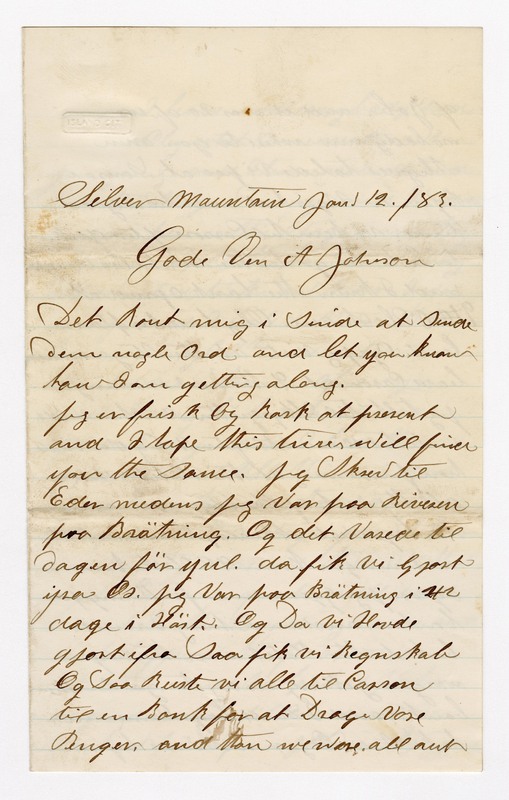 Silver Mauntain Jan 12. /83.
Gode Ven A Johnson
Det Kout mig i Sinde at Sinde
dem nogle Ord and let you know
how I am getting along.
jeg er frisk Og Kask at present
and I hope this lines will find
you the same. jeg Skrev til
Eder medens jeg Var paa Riveren
paa Brätning. Og det Varede til
dagen för yul. da fik vi Gjort
ifra Os. jeg Var paa Brätning i 42
dage i Höst. Og Da vi Havde
gjort ifra Saa fik vi Regnskab
Og Saa Reiste vi alle til Carson
til en Bank for at Drage Vore
Penger and than we Wore all aut